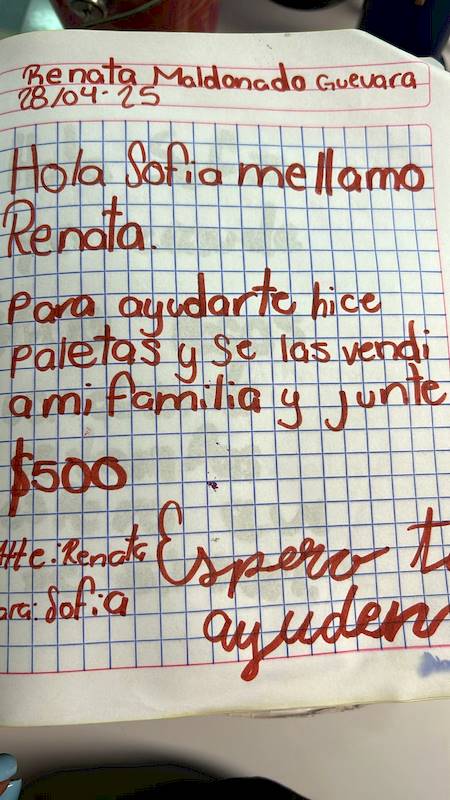 Renata Maldonado Guevara
28/04-25
Hola Sofia me llamo
Renata.
Para ayudarte hice
paletas y se las vendi
a mi familia y junte
$500
Atte: Renata
Para: Sofia
Espero t
ayuden